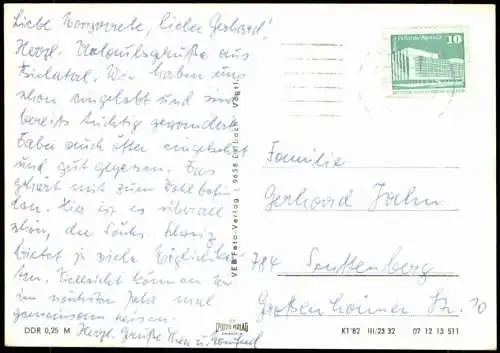 Liebe Margarete, lieber Gerhard!
Herzl. Urlaubsgrüße aus
Bielatal. Wir haben uns
schon eingelebt und sind
bereits tüchtig gewandert.
Habe auch öfter eingekehrt
und gut gegessen. Das
gehört mit zum Wohlbefin-
den. Hier ist es überall
schön, die Sächs. Schweiz
bietet ja viele Möglichkei-
ten. Vielleicht können wir
im nächsten Jahr mal
gemeinsam reisen.
Herzl. Grüße Thea u.
DDR 0,25 M
VEB Foto-Verlag
9658
Palast der Republik
10
DDR
Familie
Gerhard Jahn
784 Senftenberg
Großenhainer Str. 30
FOTO VERLAG
K1'82 III/23 32 07 12 13 511